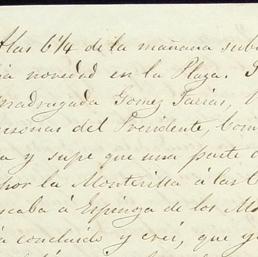 A las 6 1/4 de la mañana subi
novedad en la Plaza.
madrugada Gomez Farias,
personas del Presidente, Com
y supe que una parte
por la Monterilla á las
scaba á Espinoza de los Mo
concluido y crei, que